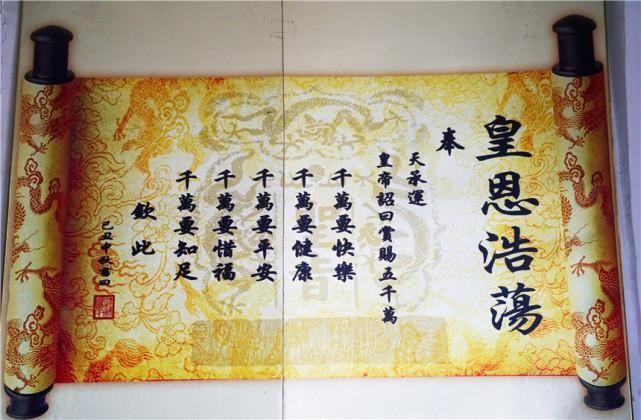 皇恩浩蕩
奉
天承運
皇帝詔曰賞賜五千萬
千萬要快樂
千萬要健康
千萬要平安
千萬要惜福
千萬要知足
欽此